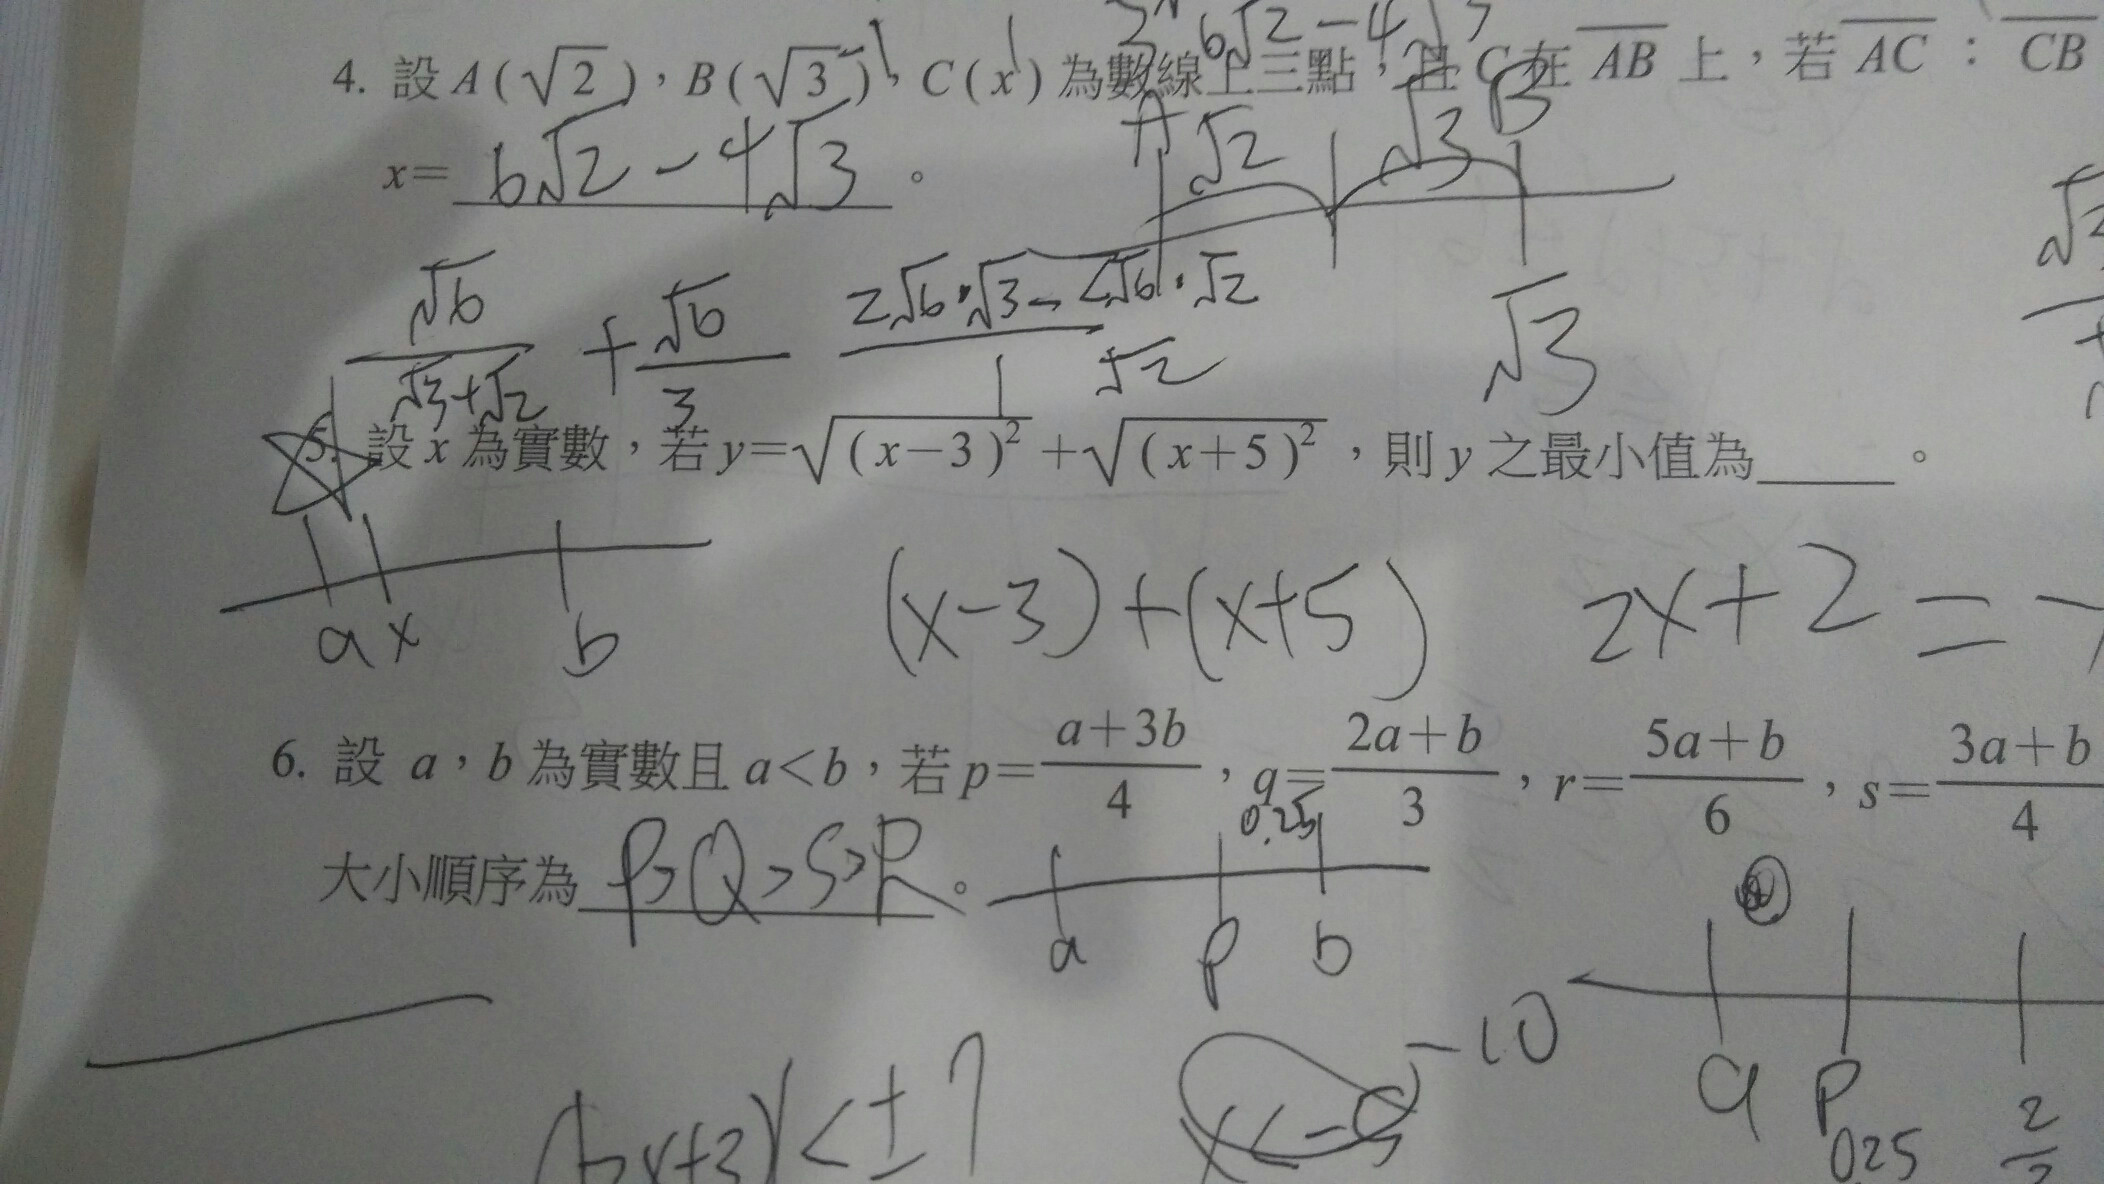 6√2-4√3
4. 設 A(√2), B(√3), C(x) 為數線上三點,且 C 在 AB 上,若 AC : CB
x= 6√2-4√3 。
A √2 √3 B
√6/(√3+√2) + √6/3
(2√6·√3-2√6·√2)/1
√2 √3
5. 設 x 為實數,若 y=√(x-3)² +√(x+5)² ,則 y 之最小值為_____。
a x b
(x-3)+(x+5) 2x+2=
6. 設 a,b 為實數且 a<b,若 p=(a+3b)/4 , q=(2a+b)/3 , r=(5a+b)/6 , s=(3a+b)/4
0.25
大小順序為 P>Q>S>R 。
a p b
-10
<±7
a P
0.25